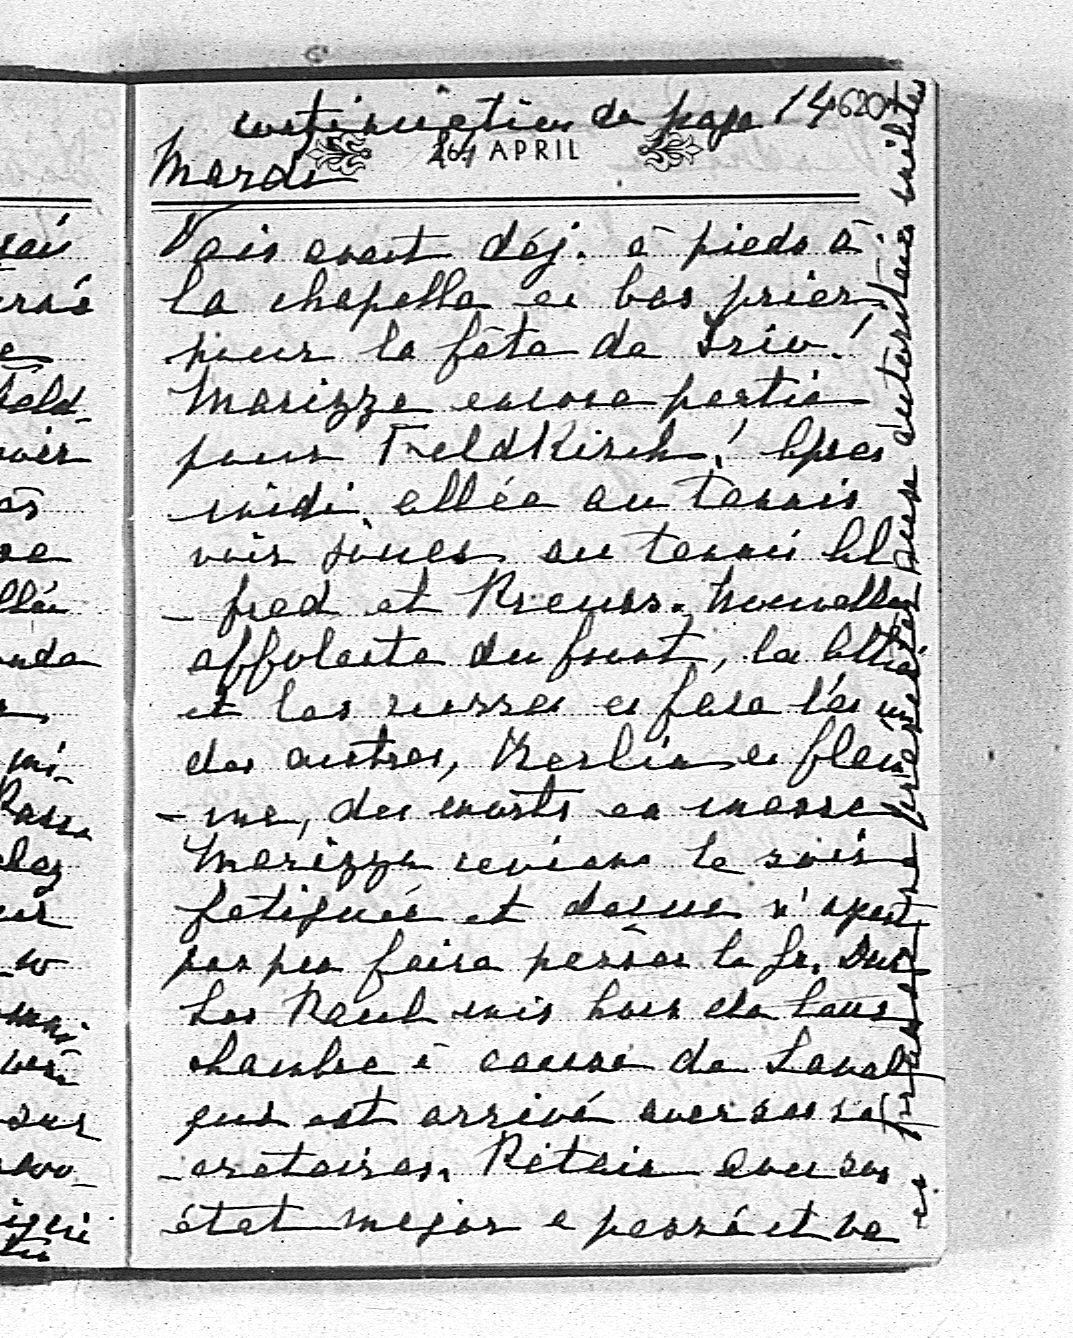 continuation de page 14 620
24 APRIL
Mardi
Vais avant déj. à pieds à
la chapelle en bas prier
pour la fête de
Marizza encore partie
pour Feldkirch! Après
midi allée au tennis
voir jouer au tennis Al
- fred et Kreuss. Nouvelles
affolante du front, les Alliés
et les russes en face l'és uns
des autres, Berlin en flam
- me, des morts en masse
Marizza reviens le soir
fatiguée et
pas pu faire passer la fr.
Les Raub mis hors de leur
chambre à cause de Laval
qui est arrivé avec ses se
- cretaires. Pétain avec son
état major a passé et va